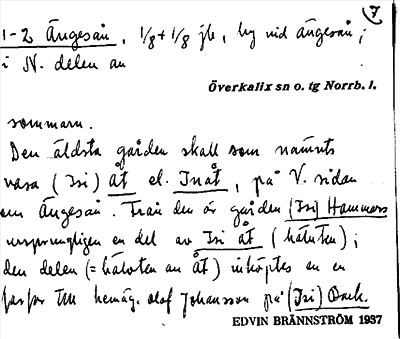 7
1-2 Ängesån, 1/8 + 1/8 jb, by vid Ängesån;
i N. delen av
Överkalix sn o. tg Norrb. l.
sommarn.
Den äldsta gården skall som nämnts
vara (Isi) åt el. Inåt, på V. sidan
om Ängesån. Från den är gården (Isi) Hammars
ursprungligen en del av Isi åt (hälften);
den delen (= hälvten av åt) inköptes av en
farfar till hemäg. Olof Johansson på (Isi) Back.
EDVIN BRÄNNSTRÖM 1937